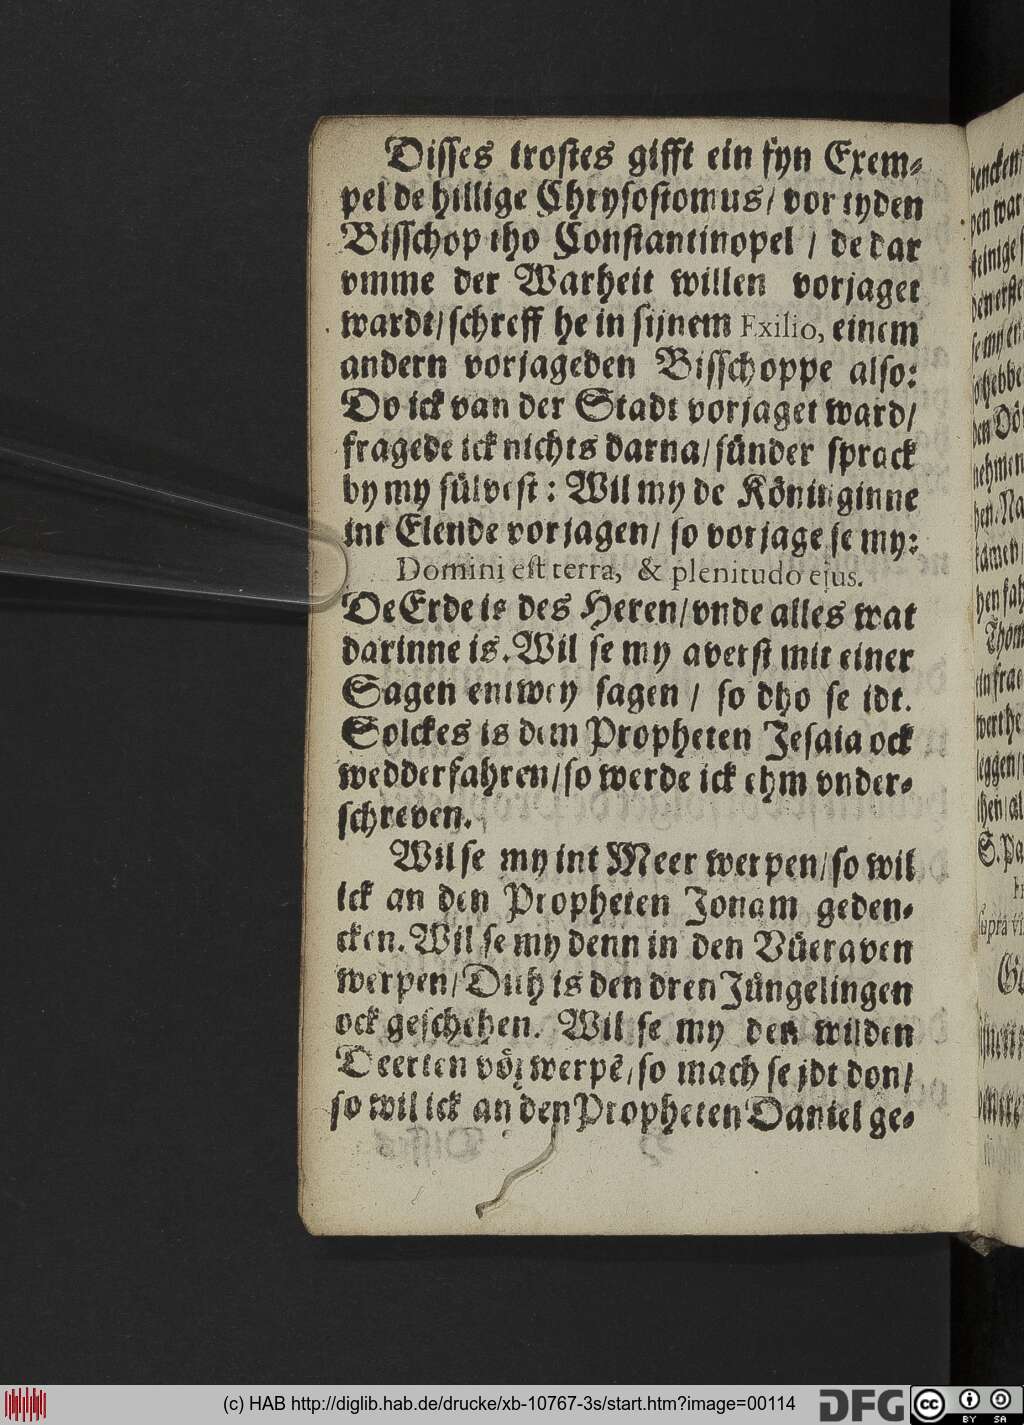 Disses trostes gifft ein fyn Exem-
pel de hillige Chrysostomus/ vor tyden
Bisschop tho Constantinopel / de dar
vmme der Warheit willen vorjaget
wardt/ schreff he in sijnem Exilio, einem
andern vorjageden Bisschoppe also:
Do ick van der Stadt vorjaget ward/
fragede ick nichts darna/ sünder sprack
by my sülvest: Wil my de Köninginne
int Elende vorjagen/ so vorjage se my:
Domini est terra, & plenitudo ejus.
De Erde is des Heren/ vnde alles wat
darinne is. Wil se my averst mit einer
Sagen entwey sagen / so dho se idt.
Solckes is dem Propheten Jesaia ock
wedderfahren/ so werde ick ehm vnder-
schreven.
Wil se my int Meer werpen/ so wil
ick an den Propheten Jonam geden-
cken. Wil se my denn in den Vüeraven
werpen/ Dith is den dren Jüngelingen
ock geschehen. Wil se my den wilden
Deerten vör werpē/ so mach se jdt don/
so wil ick an den Propheten Daniel ge-
(c) HAB http://diglib.hab.de/drucke/xb-10767-3s/start.htm?image=00114
DFG
cc
BY SA